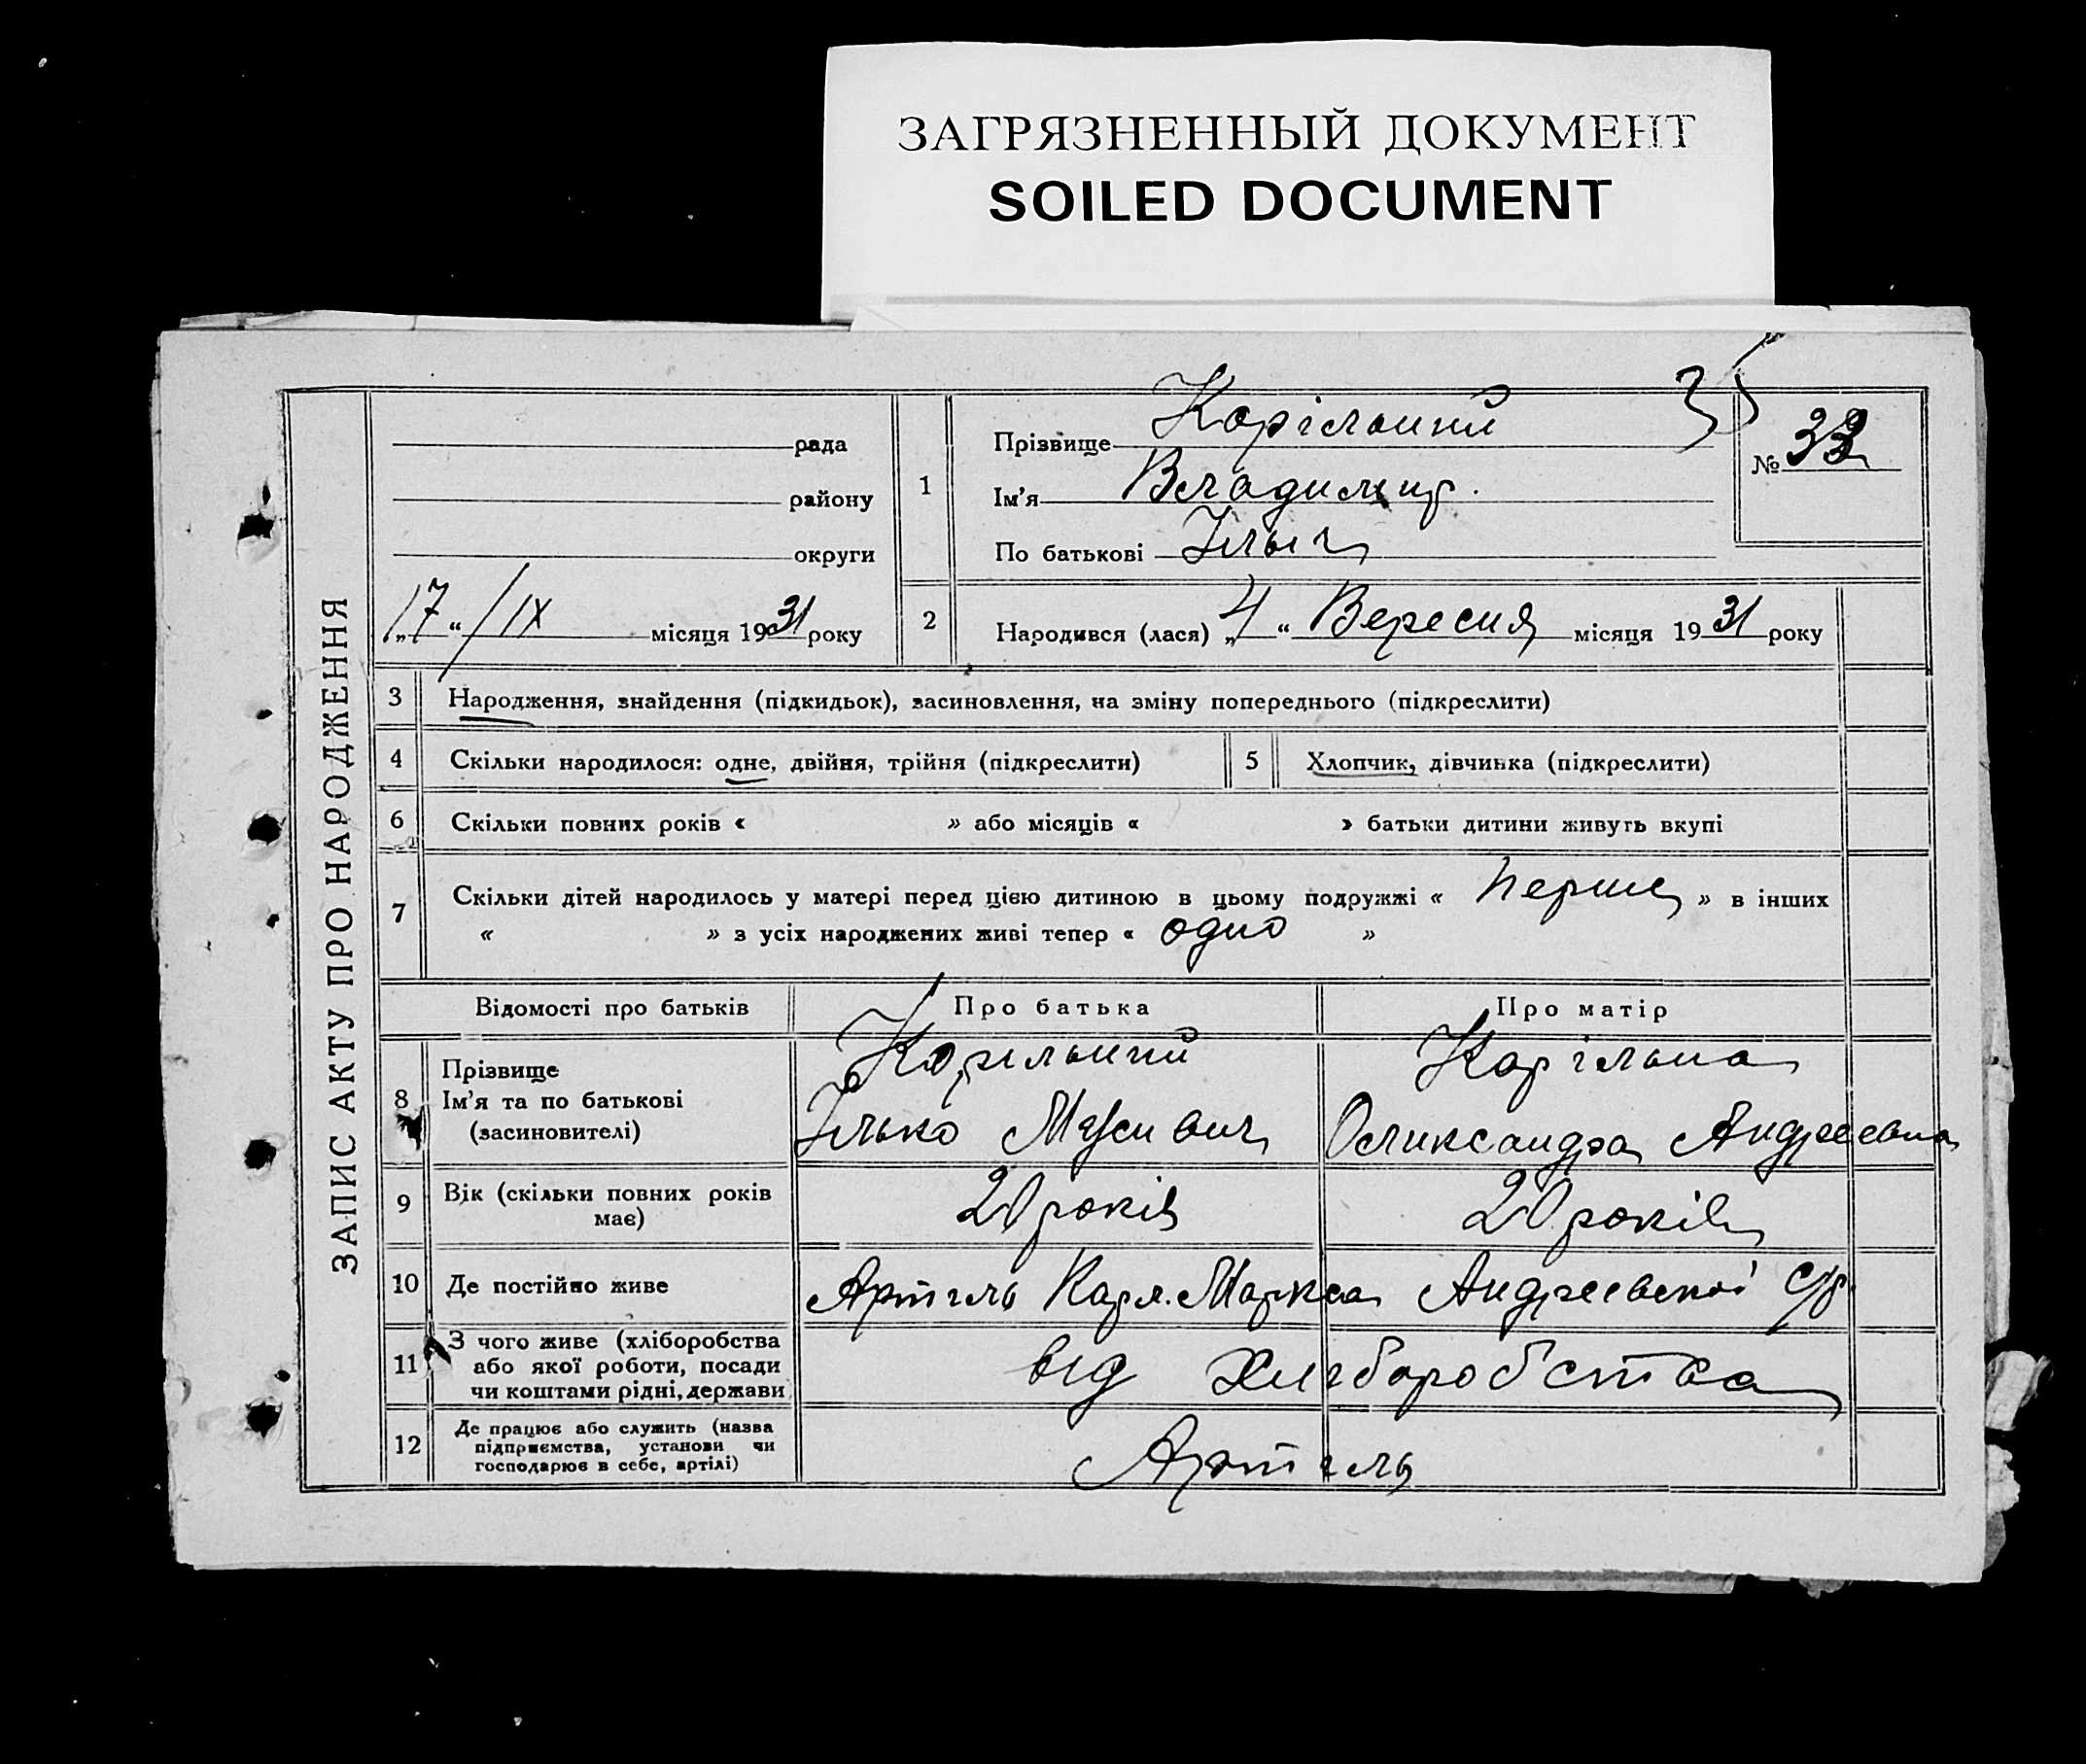 ЗАГРЯЗНЕННЫЙ ДОКУМЕНТ
SOILED DOCUMENT
ЗАПИС АКТУ ПРО НАРОДЖЕННЯ
рада
району
округи
„17“ /IX місяця 1931 року
1
Прізвище Карільский
Ім'я Владимир.
По батькові Ілыч
№ 33
35
2
Народився (лася) „4“ Вересня місяця 1931 року
3 Народження, знайдення (підкидьок), засиновлення, на зміну попереднього (підкреслити)
4 Скільки народилося: одне, двійня, трійня (підкреслити)
5 Хлопчик, дівчинка (підкреслити)
6 Скільки повних років « » або місяців « » батьки дитини живуть вкупі
7 Скільки дітей народилось у матері перед цією дитиною в цьому подружжі « перше » в інших
« » з усіх народжених живі тепер « одно »
Відомості про батьків Про батька Про матір
8 Прізвище
Ім'я та по батькові
(засиновителі)
Ілько
Оликсандра Андреевна
9 Вік (скільки повних років
має)
20 років 20 років
10 Де постійно живе Артіль Карл. Маркса Андреевскої с/р.
11 З чого живе (хліборобства
або якої роботи, посади
чи коштами рідні, держави
від Хліборобства
12 Де працює або служить (назва
підприємства, установи чи
господарює в себе, артілі)
Артіль